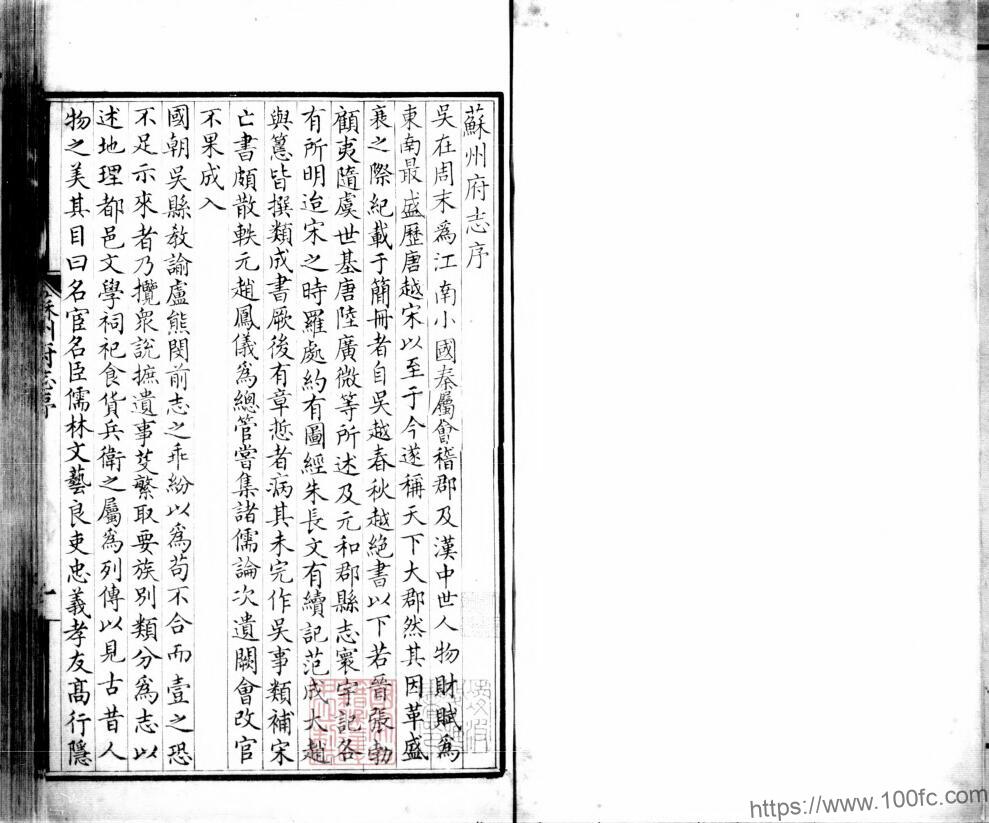 蘇州府志序
吳在周末為江南小國秦屬會稽郡及漢中世人物財賦為
東南最盛歷唐越宋以至于今遂稱天下大郡然其因革盛
衰之際紀載于簡冊者自吳越春秋越絕書以下若晉張勃
顧夷隨虞世基唐陸廣微等所述及元和郡縣志寰宇記各
有所明迨宋之時羅處約有圖經朱長文有續記范成大趙
與𥲅皆撰類成書厥後有章悊者病其未完作吳事類補宋
亡書頗散軼元趙鳳儀為總管嘗集諸儒論次遺闕會改官
不果成入
國朝吳縣敎諭盧熊閔前志之乖紛以為苟不合而壹之恐
不足示來者乃攬衆說摭遺事芟繁取要族別類分為志以
述地理都邑文學祠祀食貨兵衛之屬為列傳以見古昔人
物之美其目曰名宦名臣儒林文藝良吏忠義孝友髙行隱
蘇州府志序
一
https://www.100fc.com